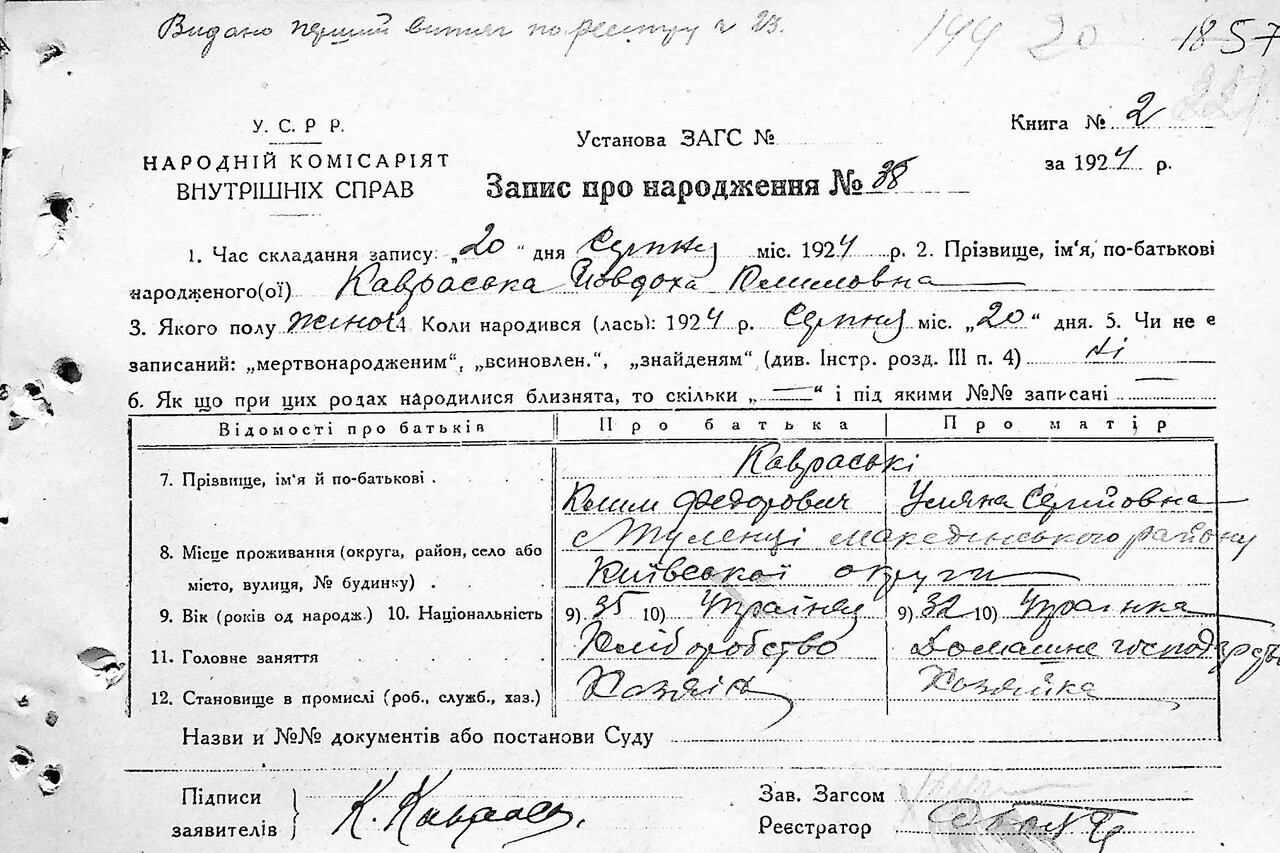 Видано перший витяг по реєстру ч 23.
144 20 1857
У. С. Р Р.
НАРОДНІЙ КОМІСАРІЯТ
ВНУТРІШНІХ СПРАВ
Установа ЗАГС №
Книга № 2
за 1924 р.
Запис про народження № 38
1. Час складання запису „20“ дня Серпня міс. 1924 р. 2. Прізвище, ім‘я, по-батькові
народженого(ої) Кавраська Йовдоха Климовна
3. Якого полу жіноч 4. Коли народився (лась): 1924 р. Серпня міс. „20“ дня. 5. Чи не є
записаний: „мертвонародженим“, „всиновлен.“, „знайденям“ (див. Інстр. розд. III п. 4) Ні
6. Як що при цих родах народилися близнята, то скільки „ — “ і під якими №№ записані —
Відомості про батьків Про батька Про матір
7. Прізвище, ім‘я й по-батькові . Кавраські
Клим Федорович Уляна Сергійовна
8. Місце проживання (округа, район, село або с Туленці Македінського району
місто, вулиця, № будинку) . Київської округи
9. Вік (років од народж.) 10. Національність 9) 35 10) Українец 9) 32 10) Українка
11. Головне заняття Хліборобство Домашне господарство
12. Становище в промислі (роб., служб., хаз.) Хозяін Хозяйка
Назви и №№ документів або постанови Суду
Підписи
заявителів
К. Каврас
Зав. Загсом
Реєстратор